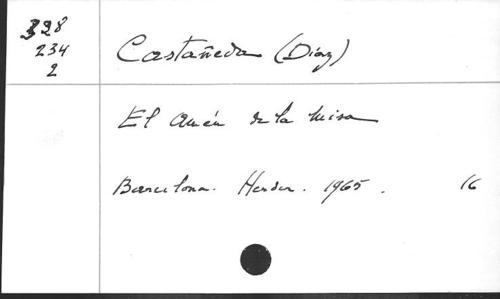 328
234
2
Castañeda (Díaz)
El amén de la misa
Barcelona. Herder. 1965. 16